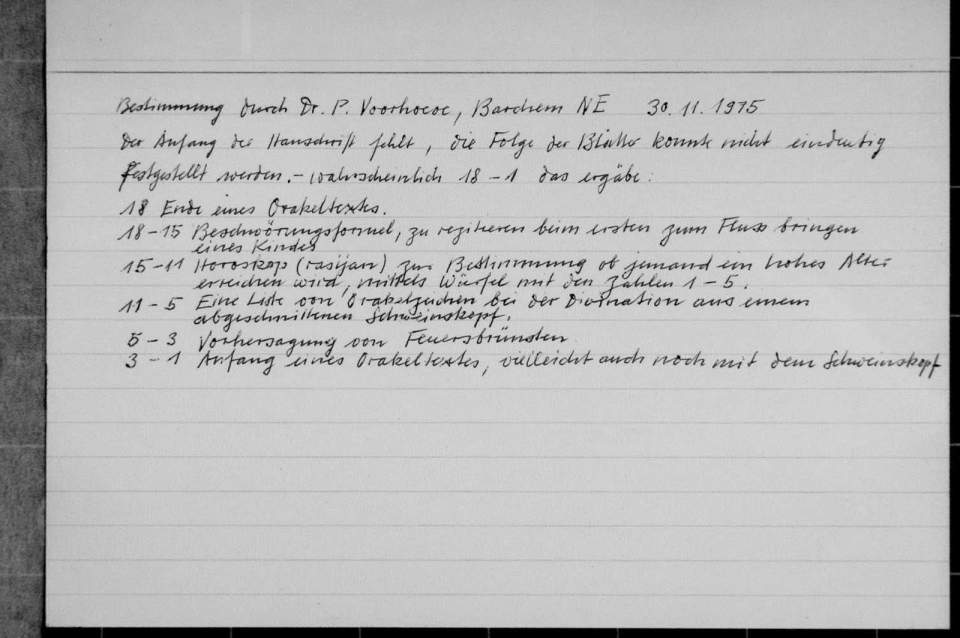 Bestimmung durch Dr. P. Voorhoeve, Barchem NE 30.11.1975
Der Anfang der Hanschrift fehlt, die Folge der Blätter konnte nicht eindeutig
festgestellt werden. – wahrscheinlich 18 – 1 das ergäbe:
18 Ende eines Orakeltextes.
18 – 15 Beschwörungsformel, zu rezitieren beim ersten zum Fluss bringen
eines Kindes
15 – 11 Horoskop (rasijan) zur Bestimmung ob jemand ein hohes Alter
erreichen wird, mittels Würfel mit den Zahlen 1 – 5.
11 – 5 Eine Liste von Orakelzeichen bei der Divination aus einem
abgeschnittenen Schweinskopf.
5 – 3 Vorhersagung von Feuersbrünsten
3 – 1 Anfang eines Orakeltextes, vielleicht auch noch mit dem Schweinskopf